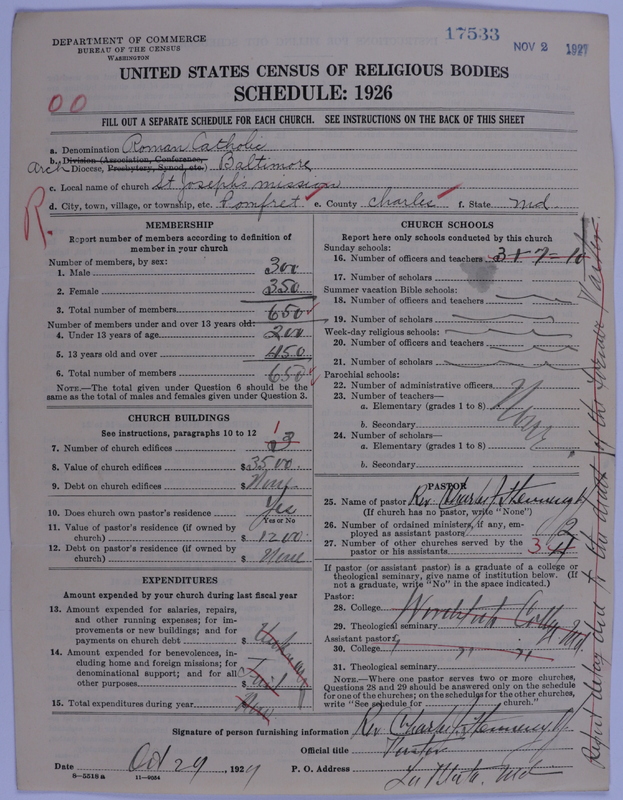 17533
NOV 2 1927
DEPARTMENT OF COMMERCE
BUREAU OF THE CENSUS
WASHINGTON
UNITED STATES CENSUS OF RELIGIOUS BODIES
SCHEDULE: 1926
00
FILL OUT A SEPARATE SCHEDULE FOR EACH CHURCH. SEE INSTRUCTIONS ON THE BACK OF THIS SHEET
a. Denomination Roman Catholic
b. Division (Association, Conference,
Arch Diocese, Presbytery, Synod, etc.) Baltimore
c. Local name of church St Joseph's mission
d. City, town, village, or township, etc. Pomfret e. County Charles f. State Md.
R.
MEMBERSHIP
Report number of members according to definition of
member in your church
Number of members, by sex:
1. Male 300
2. Female 350
3. Total number of members 650
Number of members under and over 13 years old:
4. Under 13 years of age 200
5. 13 years old and over 450
6. Total number of members 650
NOTE.—The total given under Question 6 should be the
same as the total of males and females given under Question 3.
CHURCH BUILDINGS
See instructions, paragraphs 10 to 12
7. Number of church edifices 1 3
8. Value of church edifices $3500
9. Debt on church edifices $None
10. Does church own pastor's residence Yes
Yes or No
11. Value of pastor's residence (if owned by
church) $ 1200
12. Debt on pastor's residence (if owned by
church) $ None
EXPENDITURES
Amount expended by your church during last fiscal year
13. Amount expended for salaries, repairs,
and other running expenses; for im-
provements or new buildings; and for
payments on church debt $
14. Amount expended for benevolences, in-
cluding home and foreign missions; for
denominational support; and for all
other purposes $
15. Total expenditures during year $
CHURCH SCHOOLS
Report here only schools conducted by this church
Sunday schools:
16. Number of officers and teachers 3 + 7 = 10
17. Number of scholars
Summer vacation Bible schools:
18. Number of officers and teachers
19. Number of scholars
Week-day religious schools:
20. Number of officers and teachers
21. Number of scholars
Parochial schools:
22. Number of administrative officers
23. Number of teachers—
a. Elementary (grades 1 to 8)
b. Secondary
24. Number of scholars—
a. Elementary (grades 1 to 8)
b. Secondary
PASTOR
25. Name of pastor Rev. Charles J.
(If church has no pastor, write "None")
26. Number of ordained ministers, if any, em-
ployed as assistant pastors 2
27. Number of other churches served by the
pastor or his assistants 3 4
If pastor (or assistant pastor) is a graduate of a college or
theological seminary, give name of institution below. (If
not a graduate, write "No" in the space indicated.)
Pastor:
28. College
29. Theological seminary Md.
Assistant pastor:
30. College " "
31. Theological seminary
NOTE.—Where one pastor serves two or more churches,
Questions 28 and 29 should be answered only on the schedule
for one of the churches; on the schedules for the other churches,
write "See schedule for church."
Signature of person furnishing information Rev Charles J.
Official title Pastor
Date Oct 29, 1927 P. O. Address La Plata. Md
8-5518a 11-9054
Report delay due to the death of the former Pastor